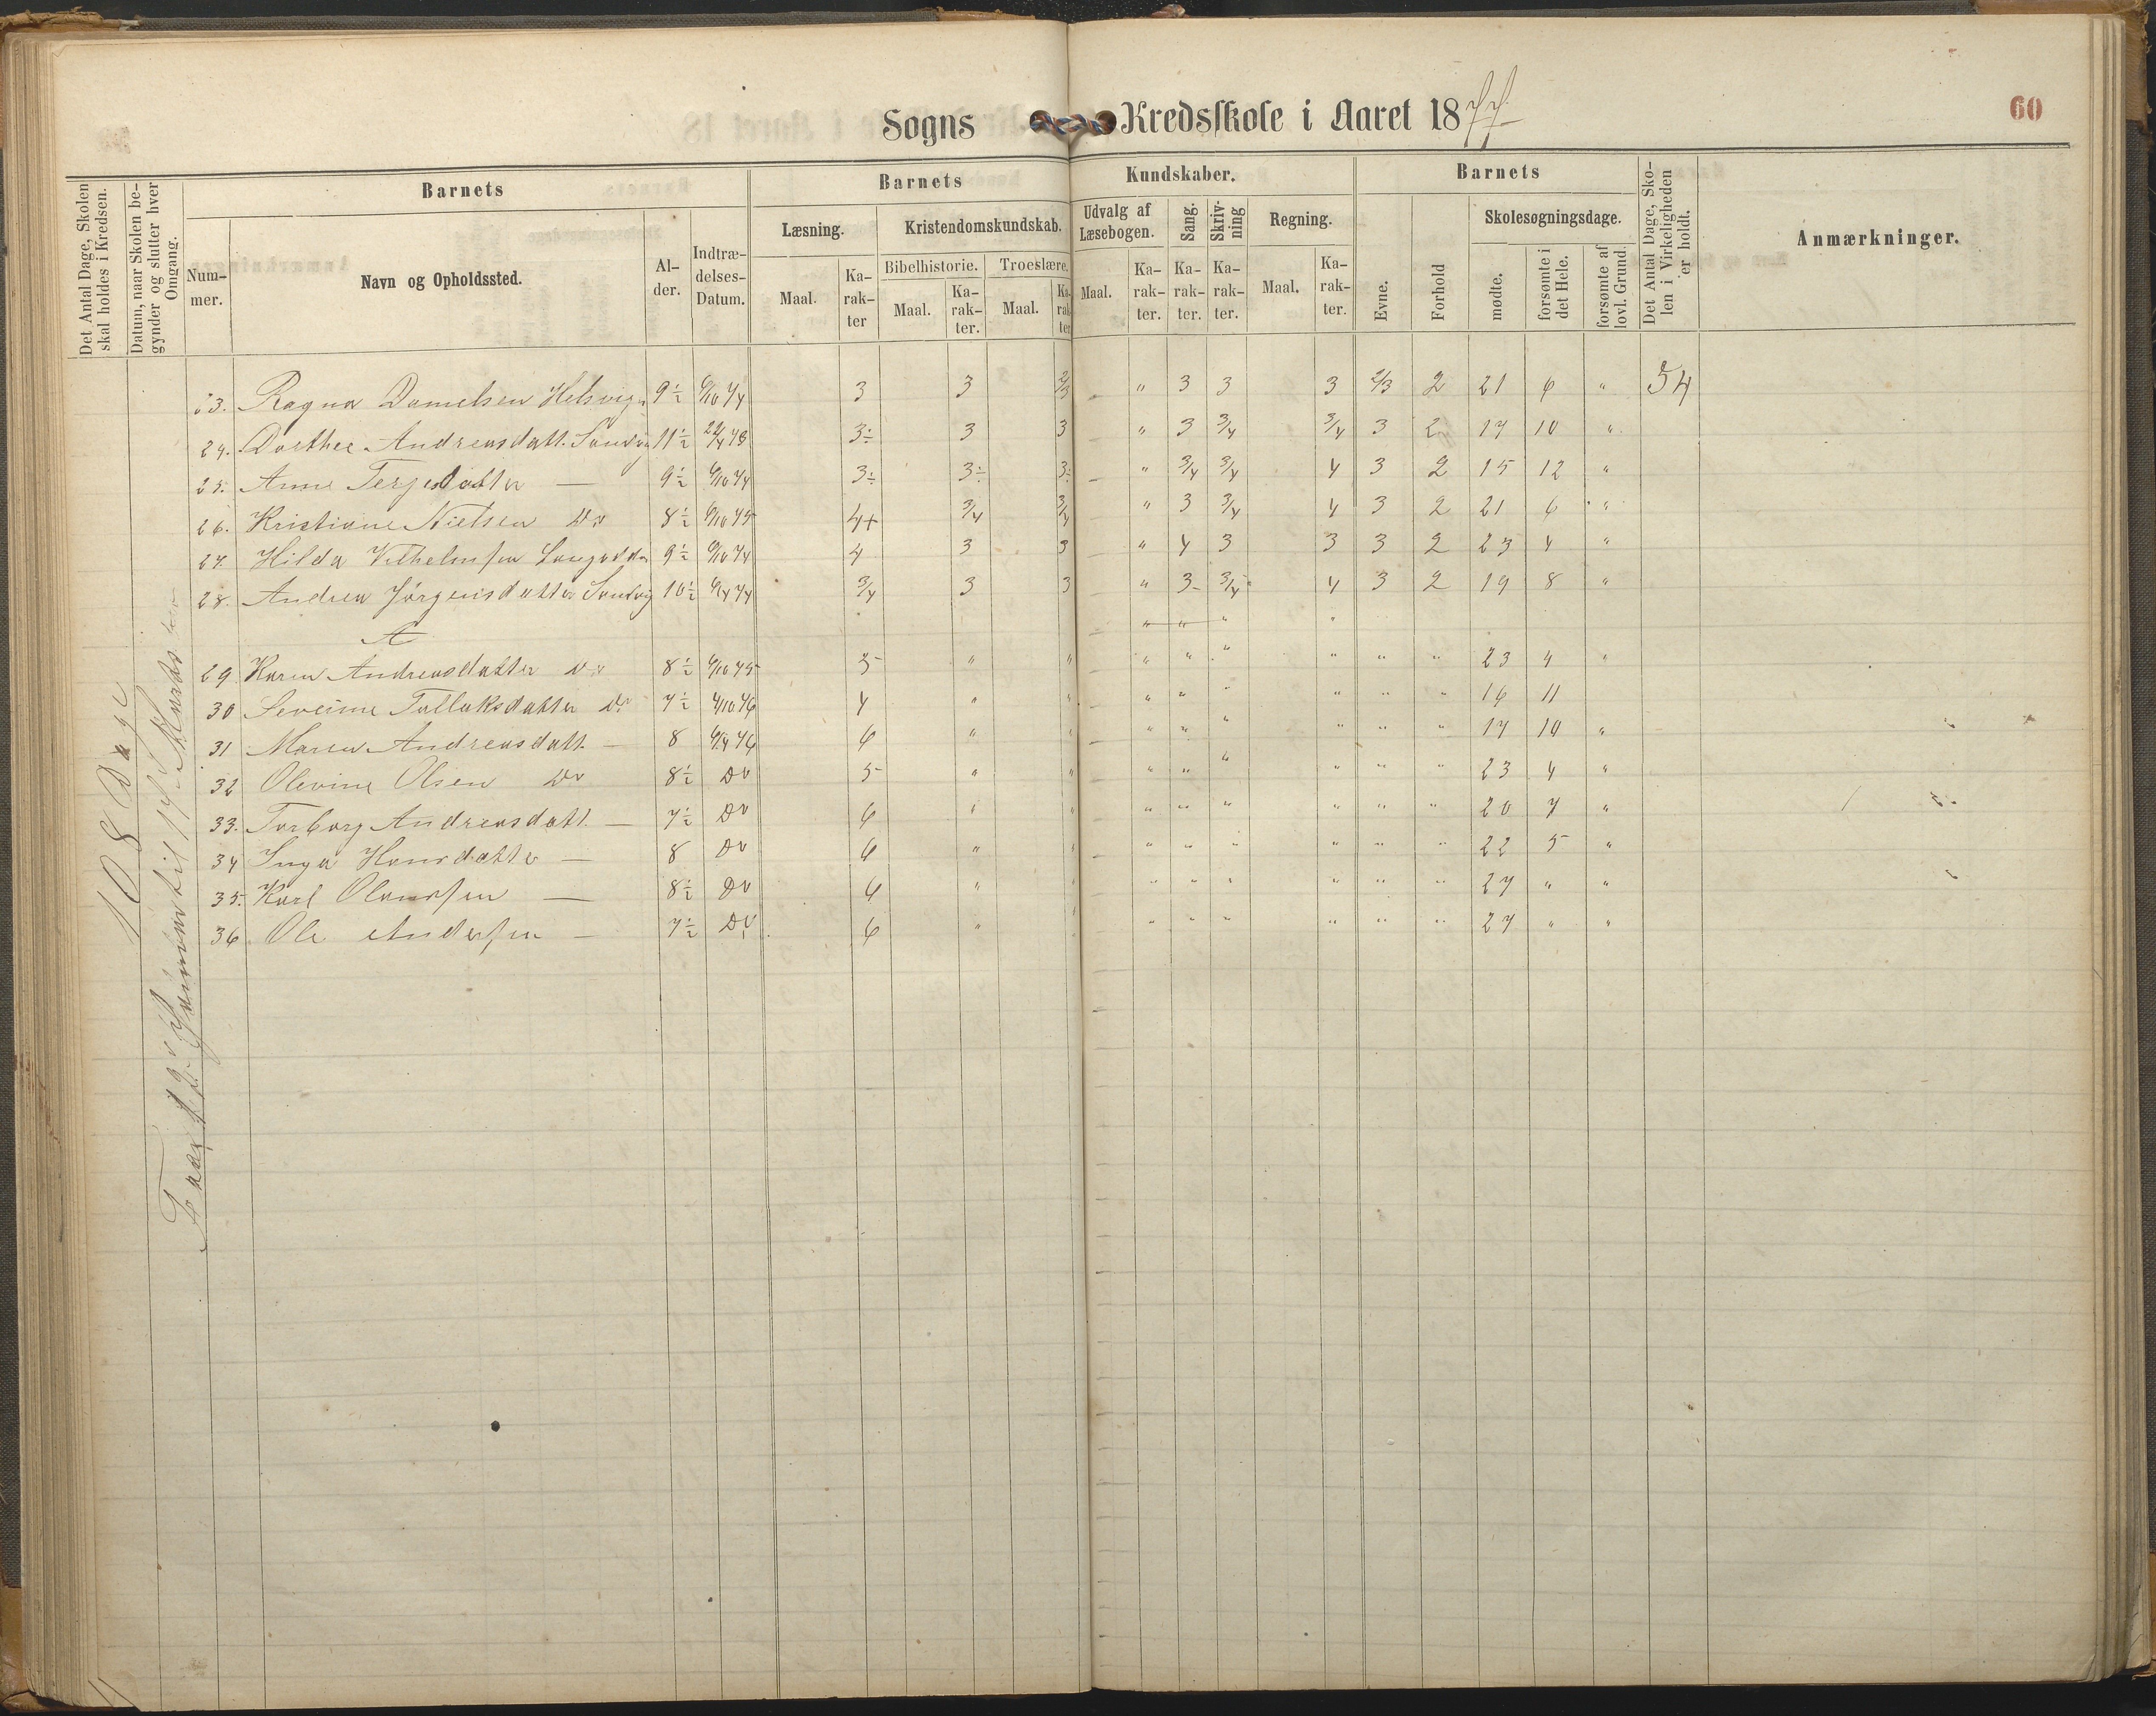 Sogns Kredsskole i Aaret 1877
60
Det Antal Dage, Skolen skal holdes i Kredsen.
Datum, naar Skolen begynder og slutter hver Omgang.
Barnets
Nummer.
Navn og Opholdssted.
Alder.
Indtrædelses-Datum.
Barnets Kundskaber.
Læsning.
Maal.
Karakter
Kristendomskundskab.
Bibelhistorie.
Maal.
Karakter.
Troeslære.
Maal.
Karakter
Udvalg af Læsebogen.
Maal.
Karakter.
Sang.
Karakter.
Skrivning
Karakter.
Regning.
Maal.
Karakter.
Barnets
Evne.
Forhold
Skolesøgningsdage.
mødte.
forsømte i det Hele.
forsømte af lovl. Grund.
Det Antal Dage, Skolen i Virkeligheden er holdt.
Anmærkninger.
108 Dage
23. Ragna Danielsen 9½ 3 3 2/3 " 3 3 3 2/3 2 21 6 " 54
24. Dorthee Andreasdatt. Sandvig 11½ 3÷ 3 3 " 3 3/4 3/4 3 2 17 10 "
25. Anne Terjesdatter — 9½ 6/10 74 3÷ 3÷ 3÷ " 3/4 3/4 4 3 2 15 12 "
26. Kristiane Nielsen Do 8½ 6/10 75 4+ 3/4 3/4 " 3 3/4 4 3 2 21 6 "
27. Hilda Vilhelmsen 9½ 6/10 74 4 3 3 " 4 3 3 3 2 23 4 "
28. Andrea Jørgensdatter Sandvig 10½ 3/4 3 3 " 3 3/4 4 3 2 19 8 "
A " " " "
29 Karen Andreasdatter Do 8½ 6/10 75 5 " " " " " " " " 23 4 "
30 Severine Tallaksdatter Do 7½ 4/10 76 4 " " " " " " " " 16 11
31 Maren Andreasdatt. — 8 6 " " " " " " " " 17 10 "
32 Olevine Olsen Do 8½ Do 5 " " " " " " " " 23 4 "
33. Torborg Andreasdatt. — 7½ Do 6 " " " " " " " " 20 7 "
34 Inga Hansdatter — 8 Do 6 " " " " " " " " 22 5 "
35. Karl Olausen — 8½ Do 6 " " " " " " " " 27 " "
36 Ole Andersen — 7½ Do 6 " " " " " " " " 27 " "